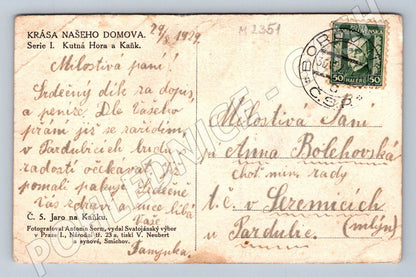 KRÁSA NAŠEHO DOMOVA.
Serie I. Kutná Hora a Kaňk.
29/X 1929
M 2351
Milostivá paní!
Srdečný dík za dopis
a peníze. Dle Vašeho
přání již se zařídím
v Pardubicích budu
radostí očekávat již
pomalí pakuje Srdečně
Vás zdraví a ruce líbá
Vaše
Fanynka.
Č. 5. Jaro na Kaňku.
Fotografoval Antonín Šorm, vydal Svatojánský výbor
v Praze I., Národní tř. 23 a, tiskl V. Neubert
a synové, Smíchov.
50 HALÉŘŮ 50
Č.S.R.
Milostivá Paní
Anna Bolehovská
choť min. rady
t. č. v Sezemicích
u Pardubic. (mlýn)
POHLEDNICE